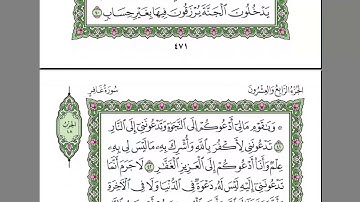 يَدۡخُلُونَ ٱلۡجَنَّةَ يُرۡزَقُونَ فِيهَا بِغَيۡرِ حِسَابٖ ٤٠
٤٧١
الجزء الرابع والعشرون
سورة غافر
۞ وَيَٰقَوۡمِ مَالِيٓ أَدۡعُوكُمۡ إِلَى ٱلنَّجَوٰةِ وَتَدۡعُونَنِيٓ إِلَى ٱلنَّارِ ٤١
تَدۡعُونَنِي لِأَكۡفُرَ بِٱللَّهِ وَأُشۡرِكَ بِهِۦ مَا لَيۡسَ لِي بِهِۦ
عِلۡمٞ وَأَنَا۠ أَدۡعُوكُمۡ إِلَى ٱلۡعَزِيزِ ٱلۡغَفَّٰرِ ٤٢ لَا جَرَمَ أَنَّمَا
تَدۡعُونَنِيٓ إِلَيۡهِ لَيۡسَ لَهُۥ دَعۡوَةٞ فِي ٱلدُّنۡيَا وَلَا فِي ٱلۡأٓخِرَةِ